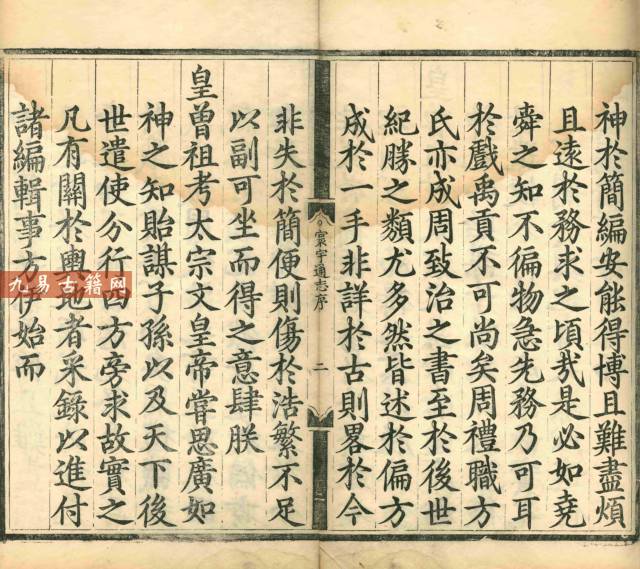 神於簡編安能得博且難盡煩
且遠於務求之頃哉是必如堯
舜之知不偏物急先務乃可耳
於戲禹貢不可尚矣周禮職方
氏亦成周致治之書至於後世
紀勝之類尤多然皆述於偏方
成於一手非詳於古則畧於今
寰宇通志序
二
非失於簡便則傷於浩繁不足
以副可坐而得之意肆朕
皇曾祖考太宗文皇帝嘗思廣如
神之知貽謀子孫以及天下後
世遣使分行四方旁求故實之
凡有關於輿地者采錄以進付
諸編輯事方伊始而
九易古籍网